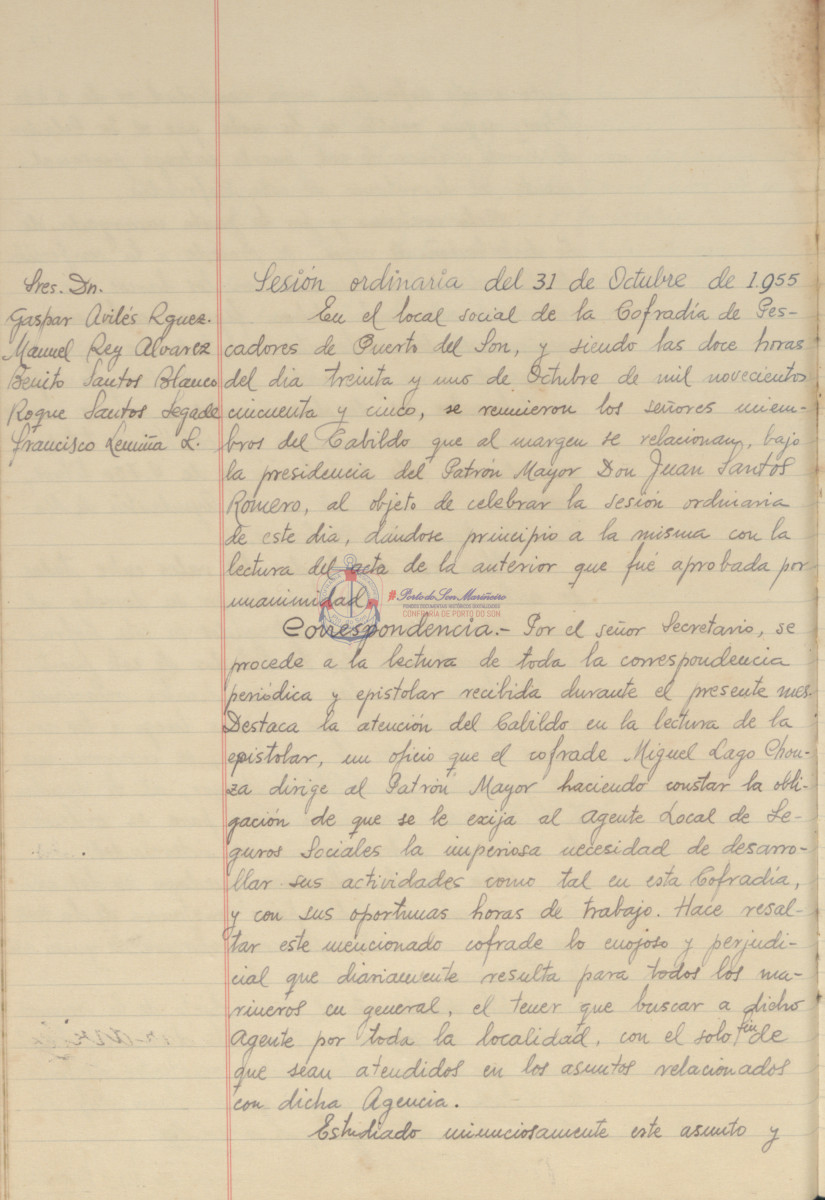 Sres. Dn.
Gaspar Avilés Rguez.
Manuel Rey Alvarez
Benito Santos Blanco
Roque Santos Segade
Francisco Lemiña L.
Sesión ordinaria del 31 de Octubre de 1.955
En el local social de la Cofradía de Pes-
cadores de Puerto del Son, y siendo las doce horas
del dia treinta y uno de Octubre de mil novecientos
cincuenta y cinco, se reunieron los señores miem-
bros del Cabildo que al margen se relacionan, bajo
la presidencia del Patrón Mayor Don Juan Santos
Romero, al objeto de celebrar la sesión ordinaria
de este dia, dándose principio a la misma con la
lectura del acta de la anterior que fué aprobada por
unanimidad.
Porto do Son Mariñeiro
FONDOS DOCUMENTAIS HISTÓRICOS DIXITALIZADOS
CONFRARÍA DE PORTO DO SON
Correspondencia.- Por el señor Secretario, se
procede a la lectura de toda la correspondencia
periódica y epistolar recibida durante el presente mes.
Destaca la atención del Cabildo en la lectura de la
epistolar, un oficio que el cofrade Miguel Lago Chou-
za dirige al Patrón Mayor haciendo constar la obli-
gación de que se le exija al Agente Local de Se-
guros Sociales la imperiosa necesidad de desarro-
llar sus actividades como tal en esta Cofradía,
y con sus oportunas horas de trabajo. Hace resal-
tar este mencionado cofrade lo enojoso y perjudi-
cial que diariamente resulta para todos los ma-
rineros en general, el tener que buscar a dicho
Agente por toda la localidad, con el solo fin de
que sean atendidos en los asuntos relacionados
con dicha Agencia.
Estudiado minuciosamente este asunto y